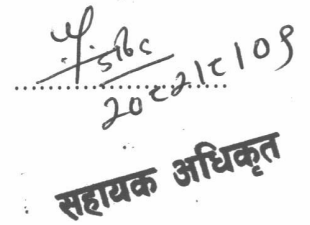 २०८२।८।०९
सहायक अधिकृत